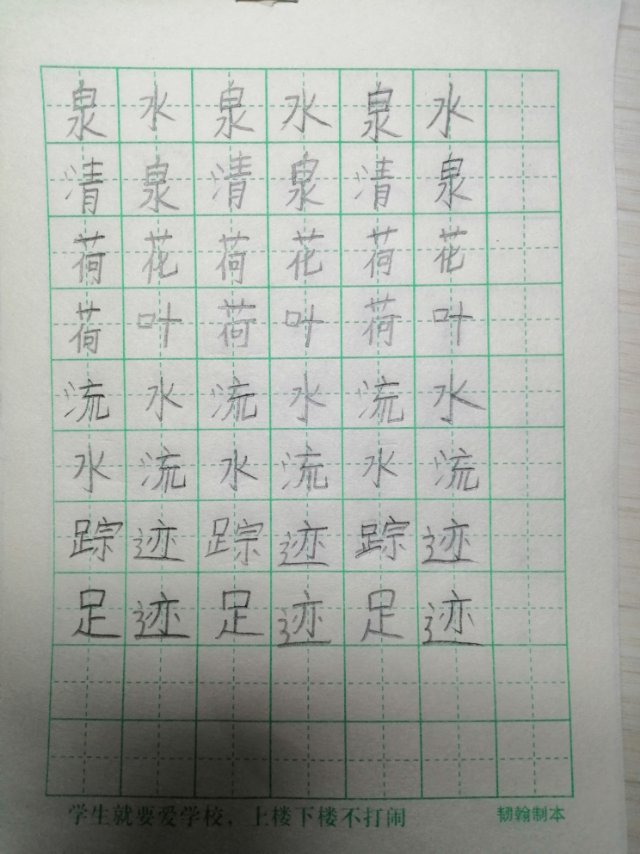 泉水泉水泉水
清泉清泉清泉
荷花荷花荷花
荷叶荷叶荷叶
流水流水流水
水流水流水流
踪迹踪迹踪迹
足迹足迹足迹
学生就要爱学校，上楼下楼不打闹 韧翰制本